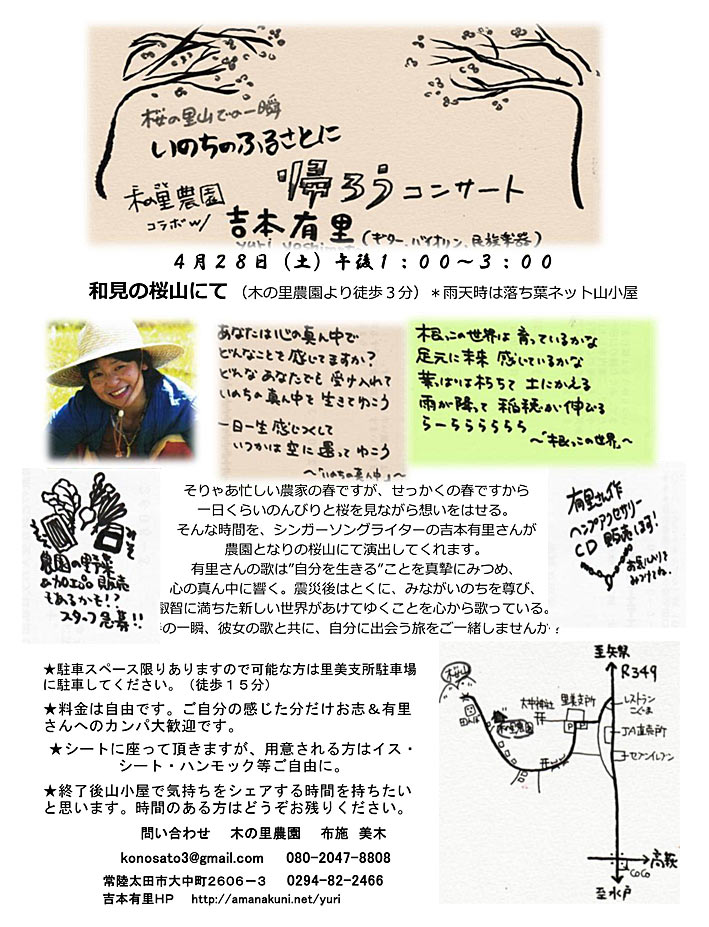 桜の里山での一瞬
いのちのふるさとに
帰ろうコンサート
木の里農園
コラボw/
吉本有里
(ギター、バイオリン、民族楽器)
yuri yoshimoto
4月28日(土)午後1:00~3:00
和見の桜山にて (木の里農園より徒歩3分)*雨天時は落ち葉ネット山小屋
あなたは心の真ん中で
どんなことを感じてますか?
どんなあなたでも受け入れて
いのちの真ん中で生きてゆこう
一日一生感じつくして
いつかは空に還ってゆこう
~「いのちの真ん中」~
根っこの世界は育っているかな
足元に未来感じているかな
葉っぱは朽ちて土にかえる
雨が降って稲穂が伸びる
らーらららららら
~「根っこの世界」~
みそ
農園の野菜
&加工品販売
もあるかも!?
スタッフ急募!!
そりゃあ忙しい農家の春ですが、せっかくの春ですから
一日くらいのんびりと桜を見ながら想いをはせる。
そんな時間を、シンガーソングライターの吉本有里さんが
農園となりの桜山にて演出してくれます。
有里さんの歌は”自分を生きる”ことを真摯にみつめ、
心の真ん中に響く。震災後はとくに、みながいのちを尊び、
叡智に満ちた新しい世界があけてゆくことを心から歌っている。
の一瞬、彼女の歌と共に、自分に出会う旅をご一緒しませんか?
有里さん作
ヘンプアクセサリー
CD 販売します!
お気に入りを
みつけてね。
★駐車スペース限りありますので可能な方は里美支所駐車場
に駐車してください。(徒歩15分)
★料金は自由です。ご自分の感じた分だけお志&有里
さんへのカンパ大歓迎です。
★シートに座って頂きますが、用意される方はイス・
シート・ハンモック等ご自由に。
★終了後山小屋で気持ちをシェアする時間を持ちたい
と思います。時間のある方はどうぞお残りください。
問い合わせ 木の里農園 布施 美木
konosato3@gmail.com 080-2047-8808
常陸太田市大中町2606-3 0294-82-2466
吉本有里HP http://amanakuni.net/yuri
至矢祭
R349
桜山
大中神社
里美支所
P
P
木の里農園
レストラン
こぐま
JA直売所
セブンイレブン
高萩
CoCo
至水戸